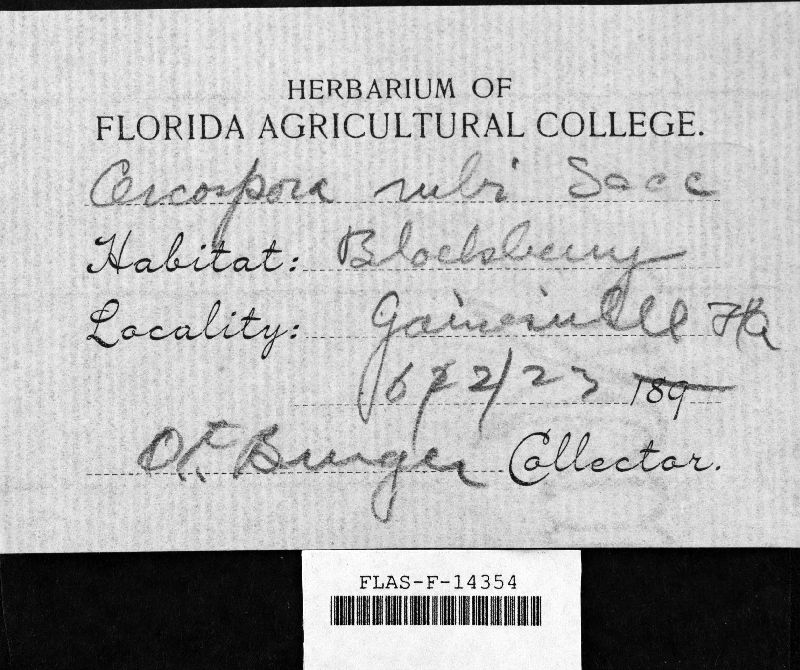 HERBARIUM OF
FLORIDA AGRICULTURAL COLLEGE.
Cercospora rubi Sacc
Habitat: Blackberry
Locality: Gainesville Fla
6/22/23 189
O.F. Burger Collector.
FLAS-F-14354